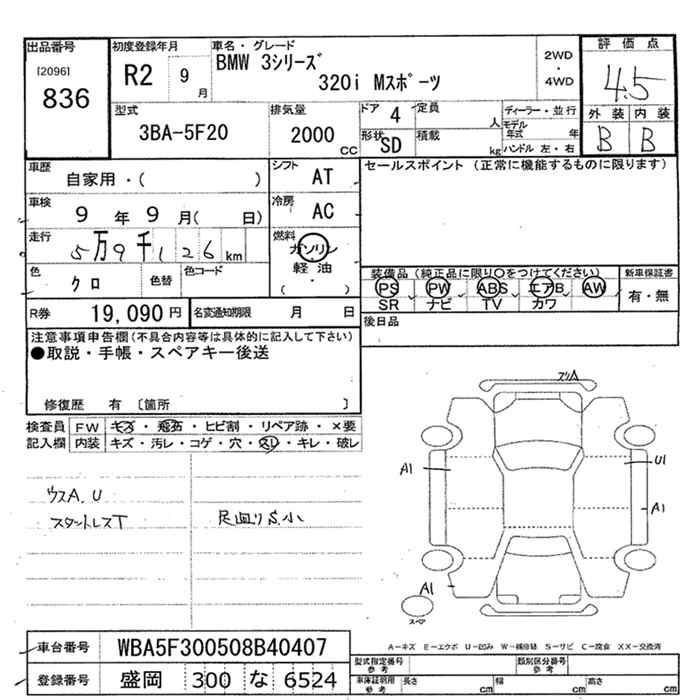 出品番号
[2096]
836
初度登録年月
R2 9月
車名・グレード
BMW 3シリーズ
320i Mスポーツ
2WD
・
4WD
評価点
4.5
外装 内装
B B
型式
3BA-5F20
排気量
2000 CC
ドア 4
形状 SD
定員 人
積載 kg
ディーラー・並行
モデル年式 年
ハンドル 左・右
車歴
自家用・( )
シフト AT
車検
9年9月( 日)
冷房 AC
走行
5万9千126km
燃料
ガソリン
軽油
( ・ )
色
クロ
色替
色コード
R券 19,090円
名変通知期限 月 日
セールスポイント (正常に機能するものに限ります)
装備品 (純正品に限り○をつけてください)
PS PW ABS エアB AW
SR ナビ TV カワ
新車保証書
有・無
後日品
注意事項申告欄(不具合内容等は具体的に記入して下さい)
●取説・手帳・スペアキー後送
修復歴 有 〔箇所 〕
検査員記入欄
FW キズ・飛石・ヒビ割・リペア跡・×要
内装 キズ・汚レ・コゲ・穴・スレ・キレ・破レ
ウスA.U
スタットレスT
足廻りS小
スリA
A1
U1
A1
A1
スペア
A-キズ E-エクボ U-凹み W-補修跡 S-サビ C-腐食 XX-交換済
車台番号 WBA5F300508B40407
登録番号 盛岡 300 な 6524
型式指定番号 参考
類別区分番号 参考
車庫証明用 参考
長さ cm
幅 cm
高さ cm